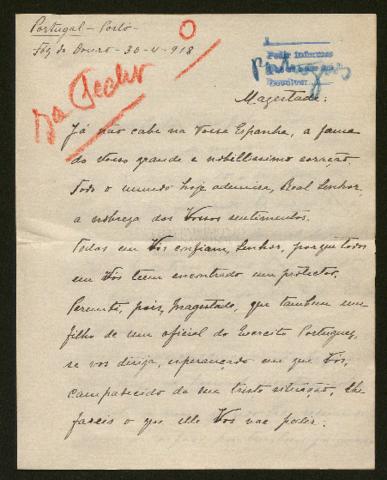 Portugal - Porto
Foz do Douro - 30-V-918
O
Pedir informes
Portugués
Devolver
Magestade:
Já não cabe na Vossa Espanha, a fama
do Vosso grande e nobillissimo coração.
Todo o mundo hoje admira, Real Senhor,
a nobreza dos Vossos sentimentos.
Todos em Vós confiam, Senhor, porque todos
em Vós teem encontrado um protector.
Permiti, pois, Magestade, que tambem um
filho de um oficial do Exercito Portuguez,
se vos dirija, esperançado em que Vós,
compadecido da sua triste situação, lhe
fareis o que elle Vos vae pedir.